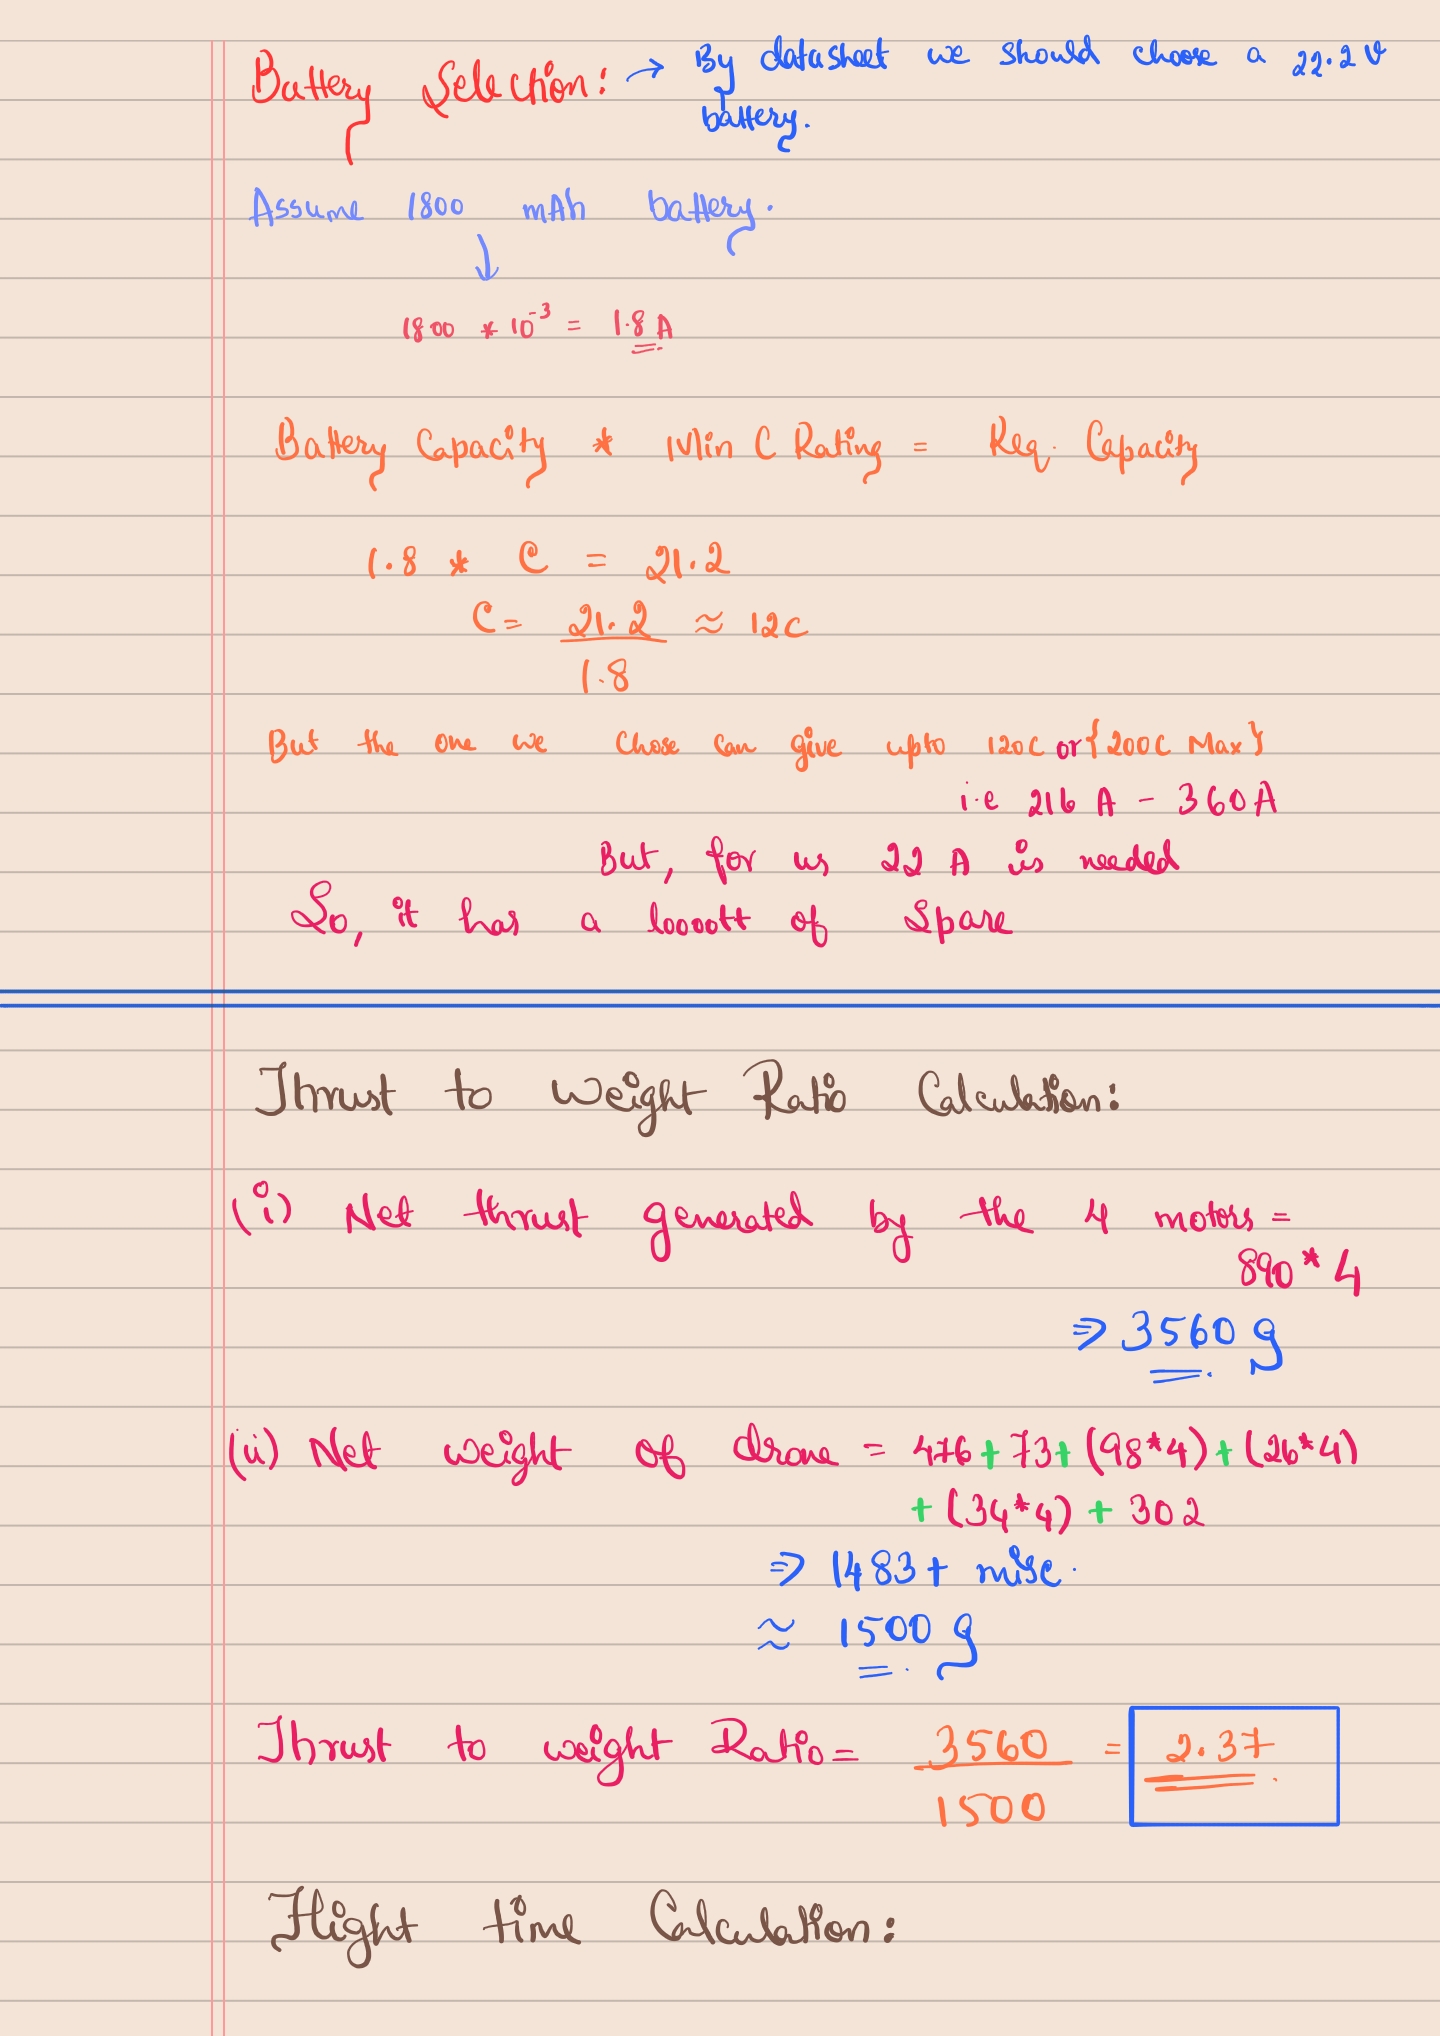 Battery Selection: → By datasheet we should choose a 22.2 V
battery.
Assume 1800 mAh battery.
↓
1800 * 10⁻³ = 1.8 A
Battery Capacity * Min C Rating = Req. Capacity
1.8 * C = 21.2
C = 21.2 / 1.8 ≈ 12C
But the one we chose can give upto 120C or {200C Max}
i.e 216 A - 360A
But, for us 22 A is needed
So, it has a loooott of Spare
Thrust to Weight Ratio Calculation:
(i) Net thrust generated by the 4 motors =
890*4
⇒ 3560 g
(ii) Net weight of drone = 476 + 73 + (98*4) + (26*4)
+ (34*4) + 302
⇒ 1483 + misc.
≈ 1500 g
Thrust to weight Ratio = 3560 / 1500 = 2.37
Flight time Calculation: